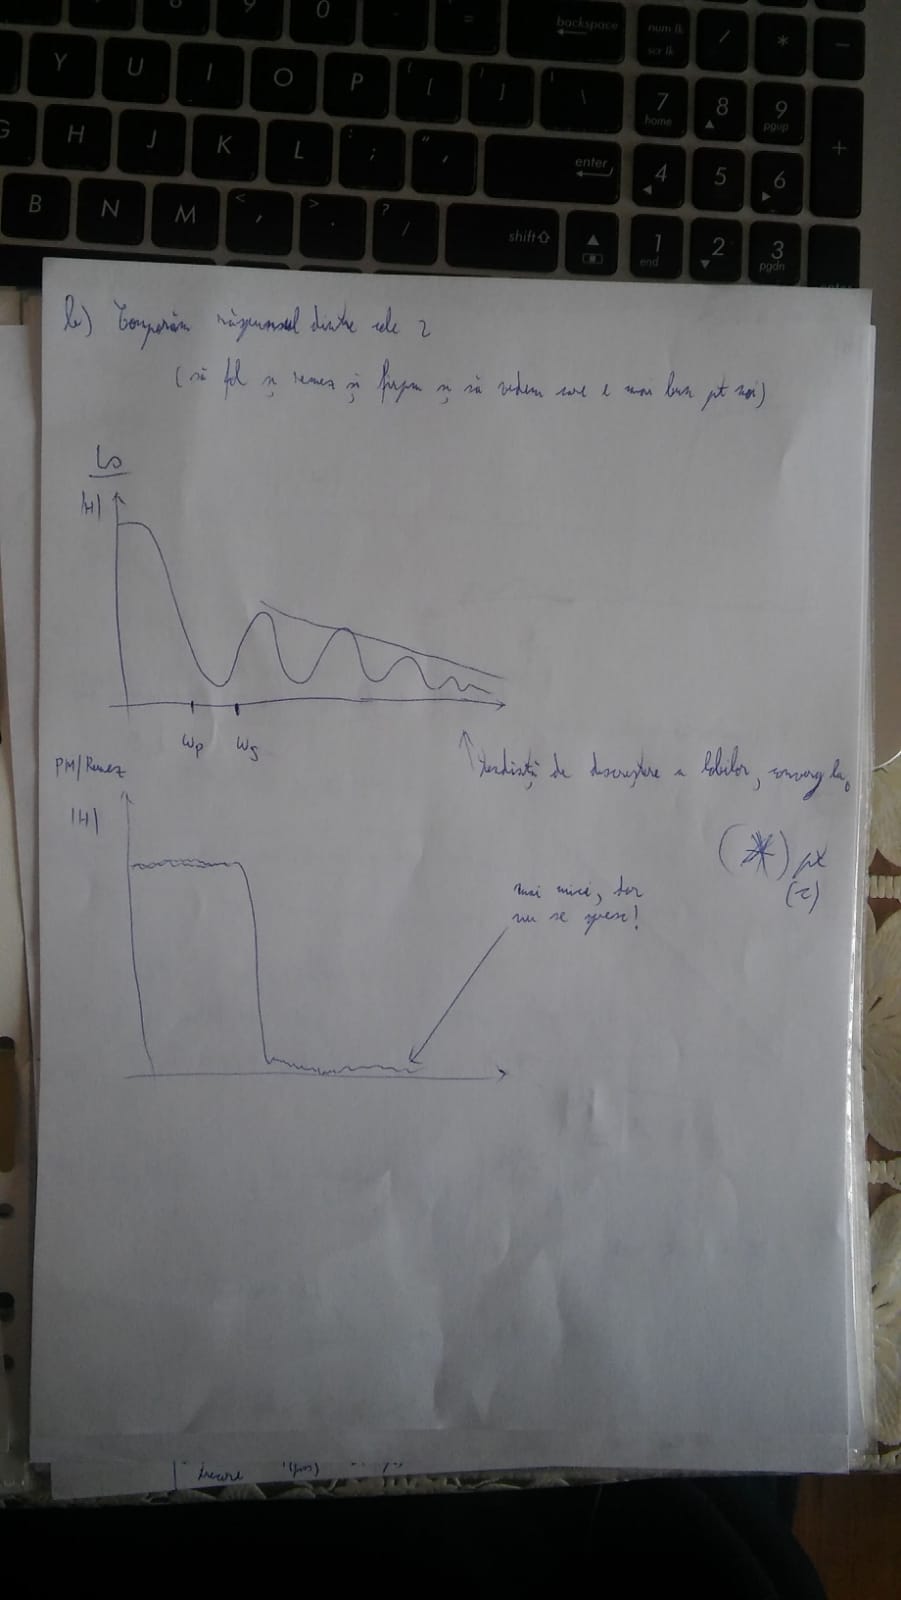 backspace
num lk
scr lk
/
*
-
Y
U
I
O
P
[
]
\
7
home
8
9
pgup
+
G
H
J
K
L
:
;
"
,
enter
4
5
6
B
N
M
<
,
>
.
?
/
shift
1
end
2
3
pgdn
b) Comparăm răspunsul dintre cele 2
(să fol și remez și firpm și să vedem care e mai bun pt noi)
LS
|H|
ωp ωs
tendință de descreștere a lobilor, converg la 0
PM/Remez
|H|
(*) pt
(c)
mai mici, dar
nu se
trecere